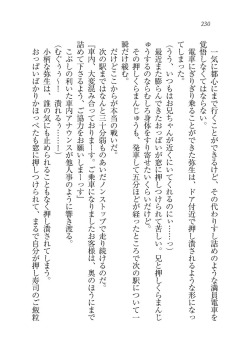 230
一気に都心にまで行くことができるけど、その代わりすし詰めのような満員電車を
覚悟しなくてはならない。
電車にぎりぎり乗ることができた弥生は、ドア付近で押しつけられるような形になっ
てしまった。
（もう、いつもはお兄ちゃんが近くにいてくれるのにぃ……！）
最近また膨らんできたおっぱいが窓に押しつけられて苦しい。兄と押しくらまんじ
ゅうするのならむしろ身体をすり寄せたいくらいだけど。
その押しくらまんじゅうも、発車して五分ほどが経ったところで次の駅について一
瞬だけ緩む。
だけどここからが本当の戦いだ。
次の駅まではなんと三十分弱ものあいだノンストップで走り続けるのだ。
『車内、大変混み合っておりまーす。ご乗車になりましたお客様は、奥のほうにまで
詰めて下さるよう、ご協力をお願いしまーっす』
こぶしの利いた車内アナウンスが他人事のように響き渡る。
（むぐうーっ！　潰れるぅ……っ）
小柄な弥生は、誰の気にも止められることもなく押し潰されてしまう。
おっぱいばかりかほっぺたも窓に押しつけられて、まるで自分が押し寿司のご飯粒